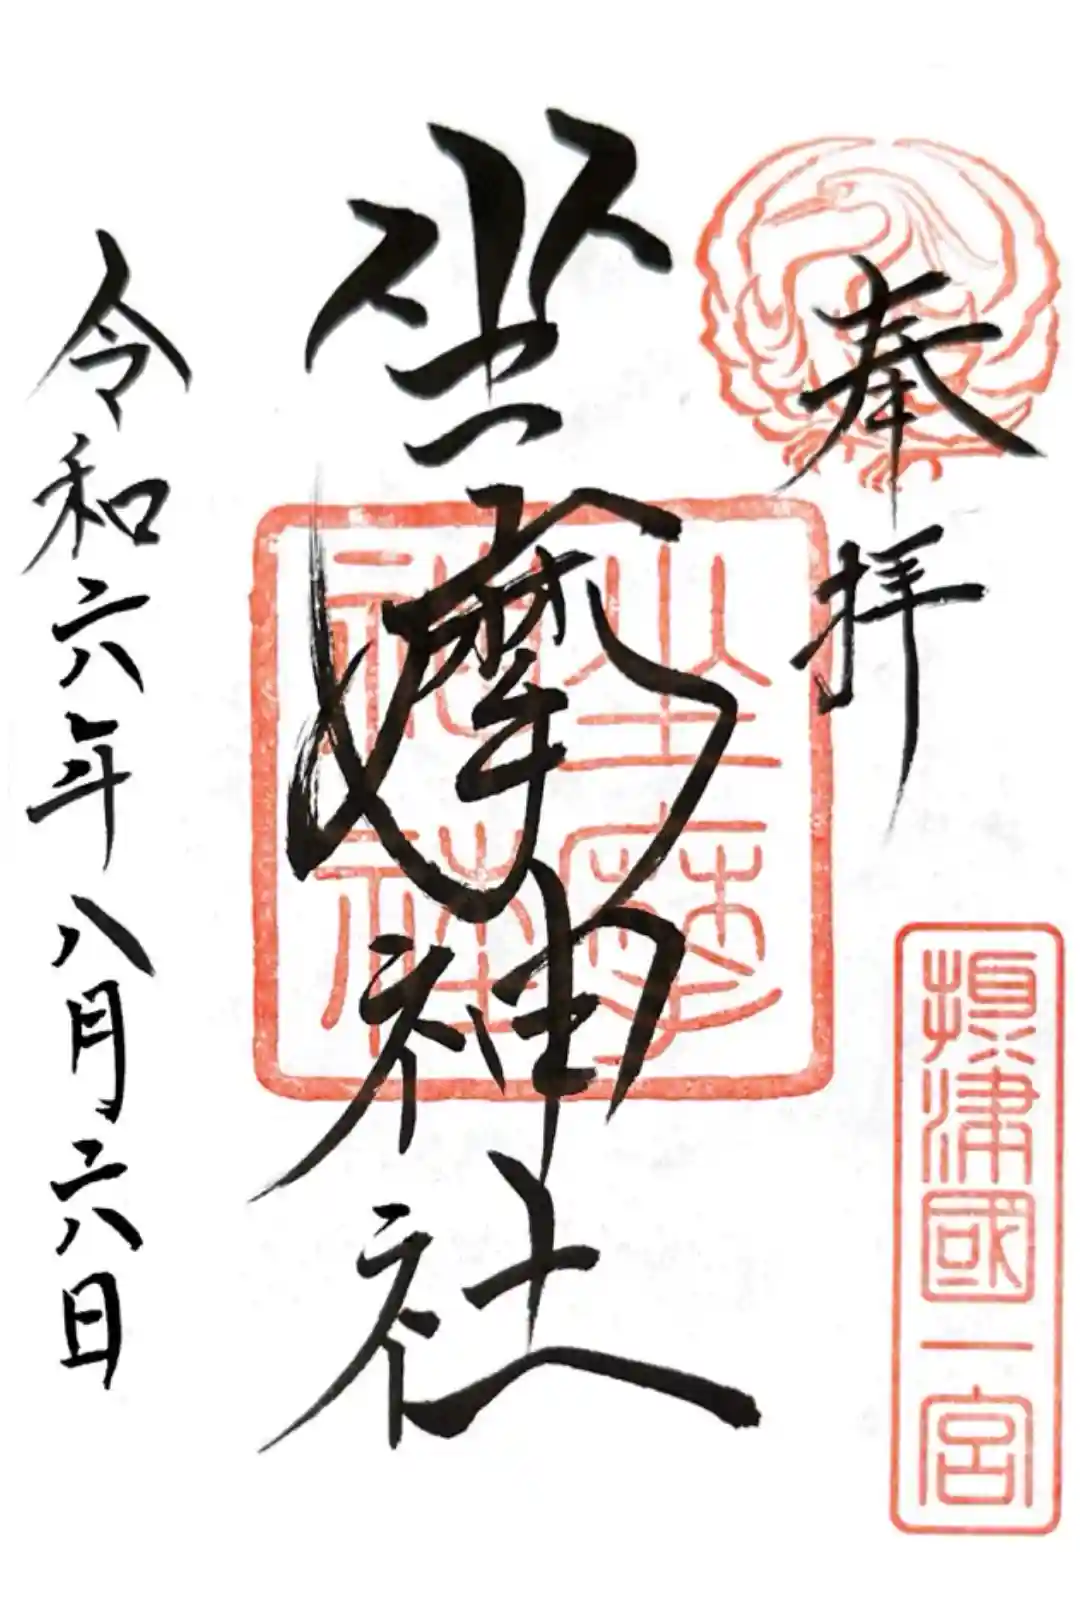 奉拝
攝津國一宮
坐摩神社
坐摩
神社
令和六年八月六日